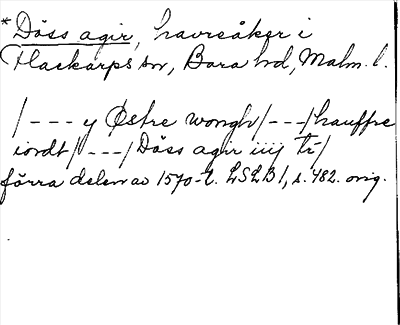 *Döss agir, havreåker i
Flackarps sn, Bara hd, Malm. l.
/--- y Østre wongh/---/hauffre
iordt/---/Döss agir iiij tr/
förra delen av 1570-t. LSLB1, s. 482. orig.